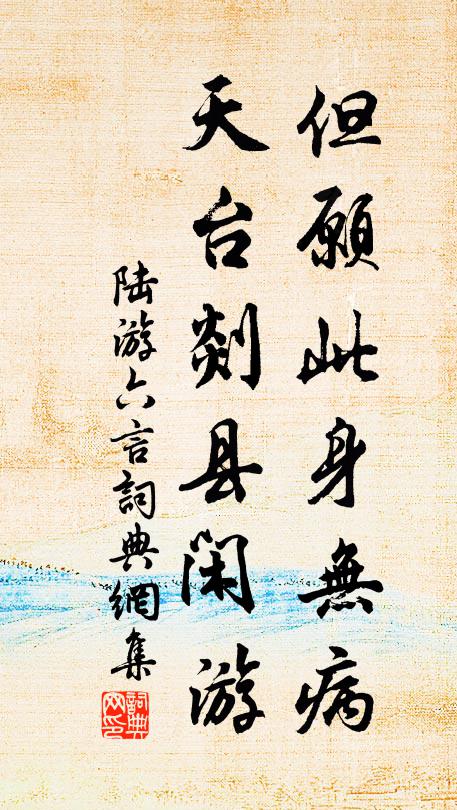 但願此身無病
天台剡县閑游
陆游六言詞典網集
詞典网印